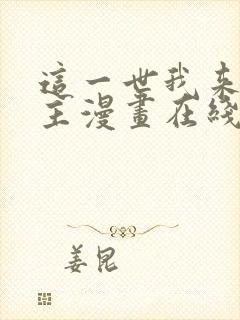 這一世我来
主漫畫在綫
姜昆